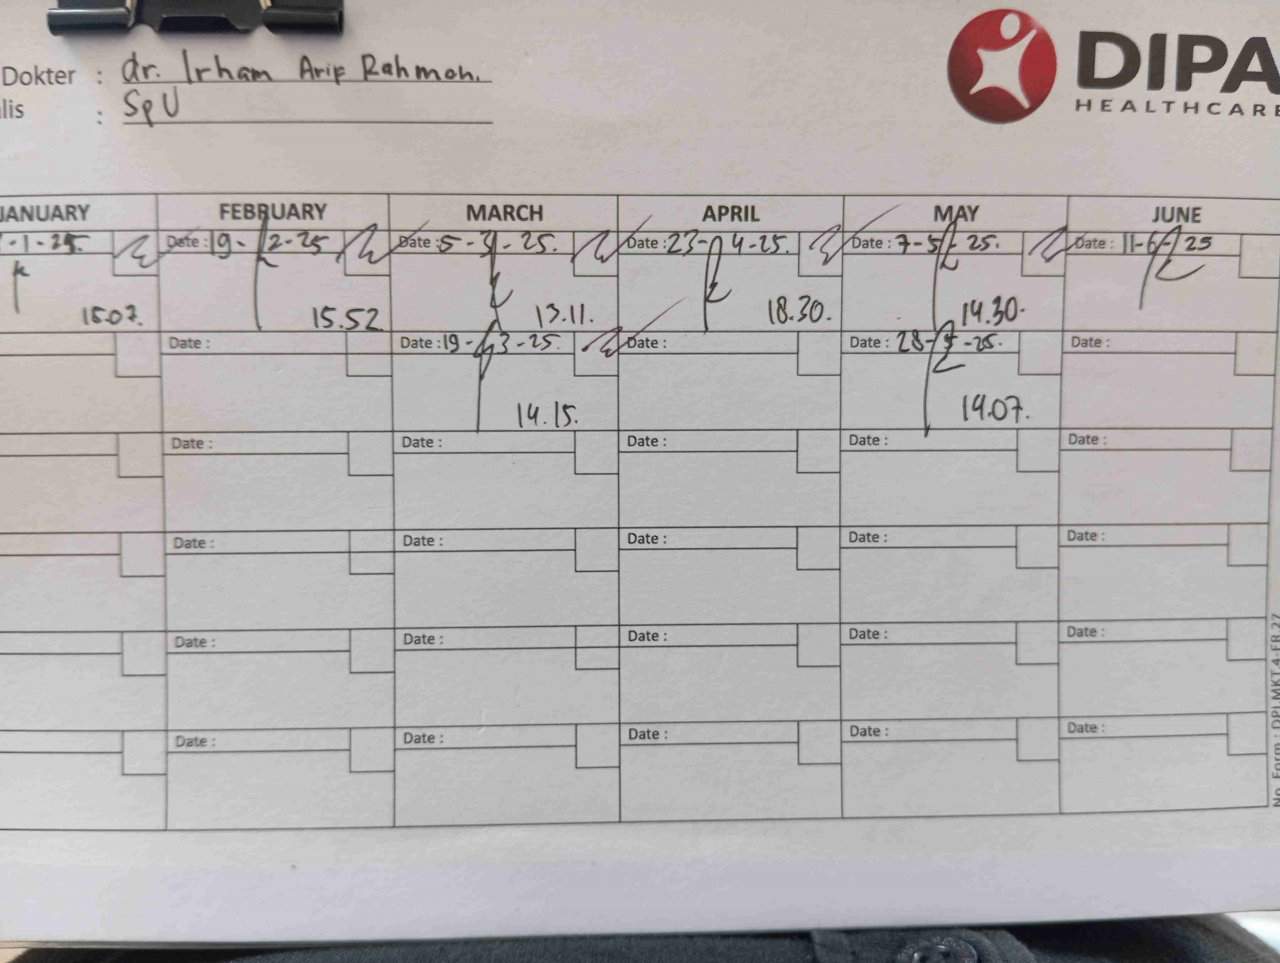 Dokter : dr. Irham Arif Rahman.
lis : SpU
DIPA
HEALTHCARE
JANUARY FEBRUARY MARCH APRIL MAY JUNE
-1-25. Date : 19-2-25 Date : 5-3-25. Date : 23-4-25. Date : 7-5-25. Date : 11-6-25
15.07. 15.52 13.11. 18.30. 14.30.
Date : Date : 19-3-25. Date : Date : 28-5-25. Date :
14.15. 14.07.
Date : Date : Date : Date : Date :
Date : Date : Date : Date : Date :
Date : Date : Date : Date : Date :
Date : Date : Date : Date : Date :
No. Form : DPI.MKT.4-FR.27